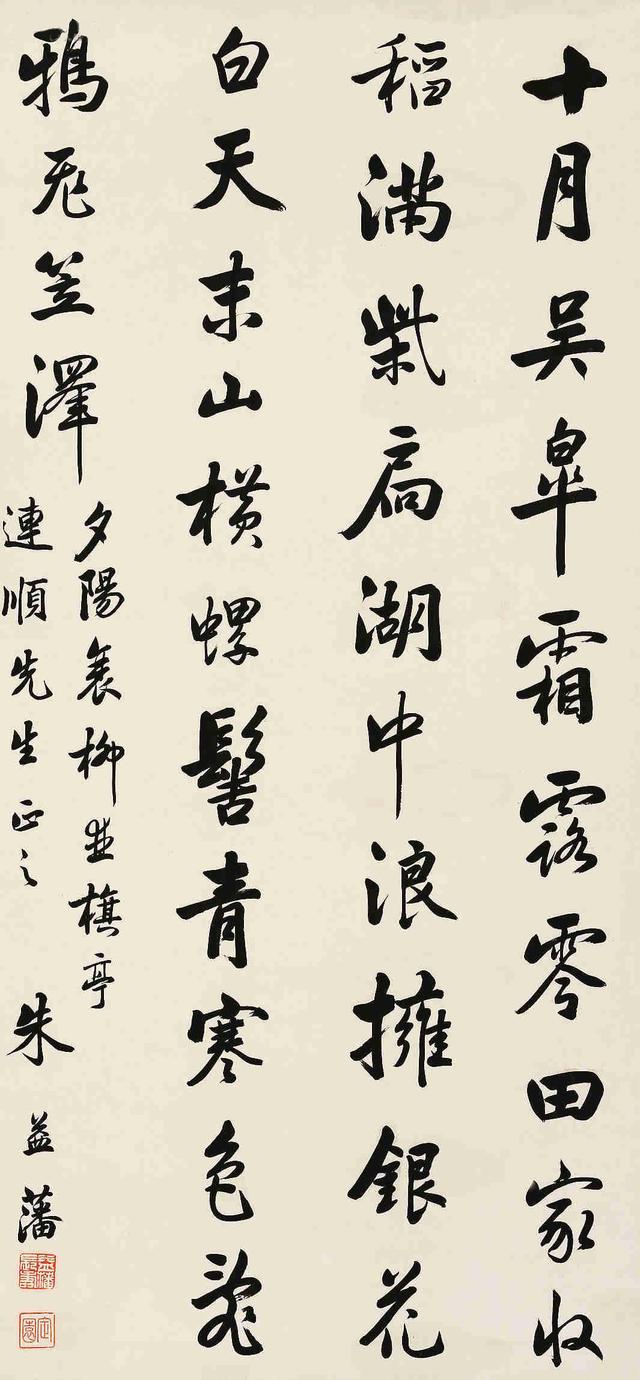 十月吳皋霜露零田家收
稻滿柴扃湖中浪擁銀花
白天末山橫螺髻青寒色亂
鴉飛笠澤
夕陽衰柳並旗亭
連順先生正之
朱益藩
定園